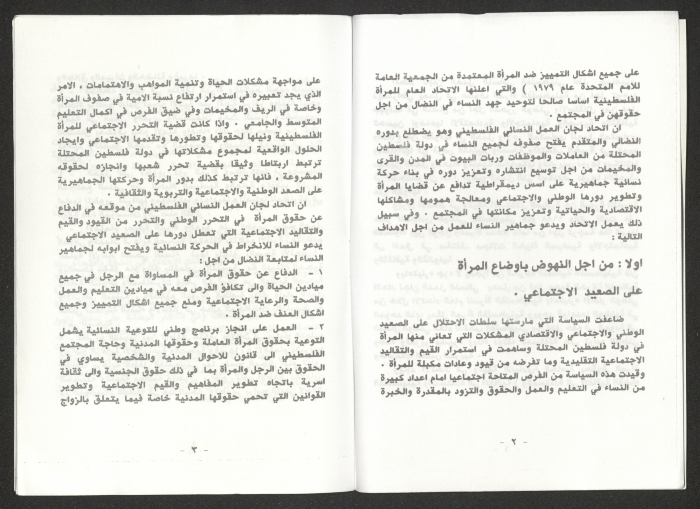 على جميع اشكال التمييز ضد المرأة المعتمدة من الجمعية العامة
للامم المتحدة عام ١٩٧٩ ) والتي اعلنها الاتحاد العام للمرأة
الفلسطينية اساسا صالحا لتوحيد جهد النساء في النضال من اجل
حقوقهن في المجتمع .
ان اتحاد لجان العمل النسائي الفلسطيني وهو يضطلع بدوره
النضالي والمتقدم يفتح صفوفه لجميع النساء في دولة فلسطين
المحتلة من العاملات والموظفات وربات البيوت في المدن والقرى
والمخيمات من اجل توسيع انتشاره وتعزيز دوره في بناء حركة
نسائية جماهيرية على اسس ديمقراطية تدافع عن قضايا المرأة
وتطوير دورها الوطني والاجتماعي ومعالجة همومها ومشاكلها
الاقتصادية والحياتية وتعزيز مكانتها في المجتمع . وفي سبيل
ذلك يعمل الاتحاد ويدعو جماهير النساء للعمل من اجل الاهداف
التالية :
اولا : من اجل النهوض باوضاع المرأة
على الصعيد الاجتماعي .
ضاعفت السياسة التي مارستها سلطات الاحتلال على الصعيد
الوطني والاجتماعي والاقتصادي المشكلات التي تعاني منها المرأة
في دولة فلسطين المحتلة وساهمت في استمرار القيم والتقاليد
الاجتماعية التقليدية وما تفرضه من قيود وعادات مكبلة للمرأة .
وقيدت هذه السياسة من الفرص المتاحة اجتماعيا امام اعداد كبيرة
من النساء في التعليم والعمل والحقوق والتزود بالمقدرة والخبرة
- ٢ -
على مواجهة مشكلات الحياة وتنمية المواهب والاهتمامات , الامر
الذي يجد تعبيره في استمرار ارتفاع نسبة الامية في صفوف المرأة
وخاصة في الريف والمخيمات وفي ضيق الفرص في اكمال التعليم
المتوسط والجامعي . واذا كانت قضية التحرر الاجتماعي للمرأة
الفلسطينية ونيلها لحقوقها وتطورها وتقدمها الاجتماعي وايجاد
الحلول الواقعية لمجموع مشكلاتها في دولة فلسطين المحتلة
ترتبط ارتباطا وثيقا بقضية تحرر شعبها وانجازه لحقوقه
المشروعة , فانها ترتبط كذلك بدور المرأة وحركتها الجماهيرية
على الصعد الوطنية والاجتماعية والتربوية والثقافية .
ان اتحاد لجان العمل النسائي الفلسطيني من موقعه في الدفاع
عن حقوق المرأة في التحرر الوطني والتحرر من القيود والقيم
والتقاليد الاجتماعية التي تعطل دورها على الصعيد الاجتماعي
يدعو النساء للانخراط في الحركة النسائية ويفتح ابوابه لجماهير
النساء لمتابعة النضال من اجل :
١ - الدفاع عن حقوق المرأة في المساواة مع الرجل في جميع
ميادين الحياة والى تكافؤ الفرص معه في ميادين التعليم والعمل
والصحة والرعاية الاجتماعية ومنع جميع اشكال التمييز وجميع
اشكال العنف ضد المرأة .
٢ - العمل على انجاز برنامج وطني للتوعية النسائية يشمل
التوعية بحقوق المرأة العاملة وحقوقها المدنية وحاجة المجتمع
الفلسطيني الى قانون للاحوال المدنية والشخصية يساوي في
الحقوق بين الرجل والمرأة بما في ذلك حقوق الجنسية والى ثقافة
اسرية باتجاه تطوير المفاهيم والقيم الاجتماعية وتطوير
القوانين التي تحمي حقوقها المدنية خاصة فيما يتعلق بالزواج
- ٣ -